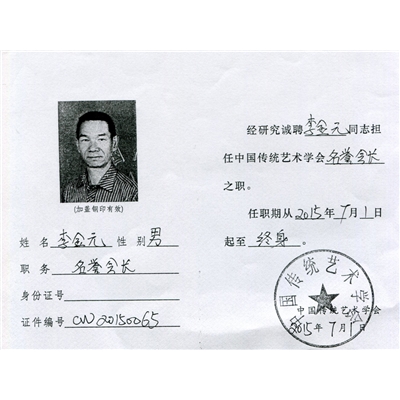 (加盖钢印有效)
姓 名 李金元 性 别 男
职 务 名誉会长
身份证号
证件编号 CW20150065
经研究诚聘李金元同志担
任中国传统艺术学会名誉会长
之职。
任职期从2015年7月1日
起至 终身。
中国传统艺术学会
中国传统艺术学会
2015年7月1日